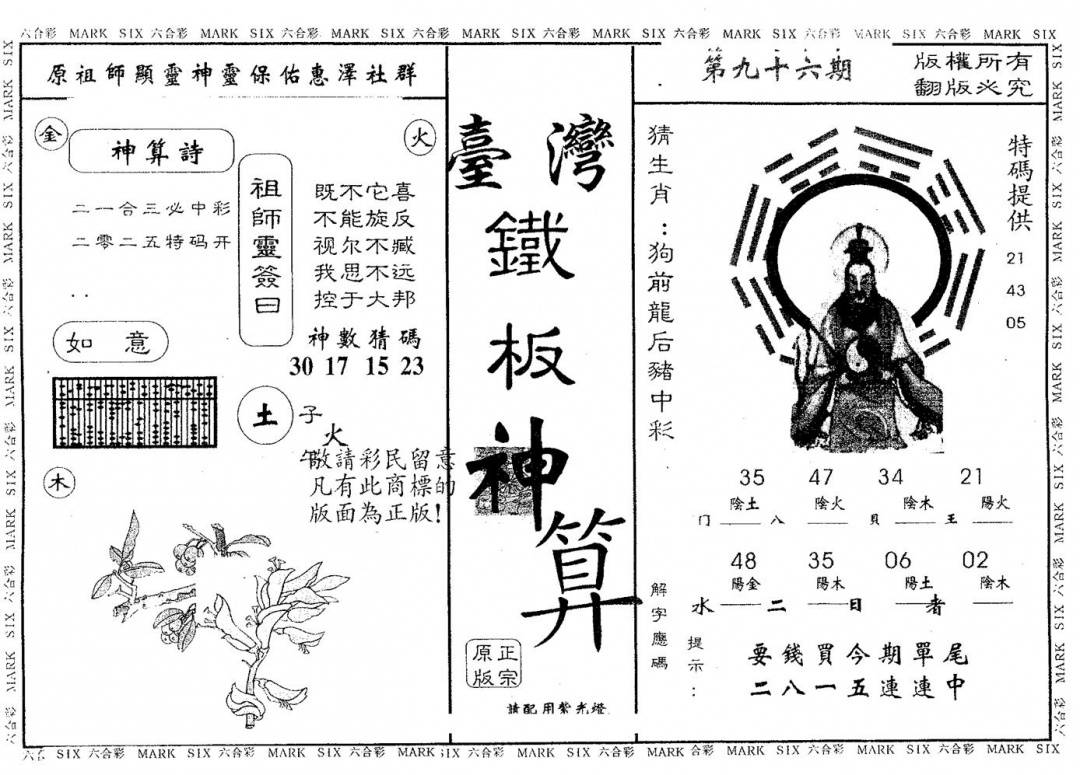 六合彩 MARK SIX 六合彩 MARK SIX 六合彩 MARK SIX 六合彩 MARK SIX 六合彩 MARK SIX 六合彩 MARK SIX 六合彩 MARK SIX 六合彩 MARK SIX
原祖師顯靈神靈保佑惠澤社群
金
火
神算詩
二一合三必中彩
二零二五特码开
..
如 意
祖師靈簽曰
既不它喜
不能旋反
视尔不臧
我思不远
控于大邦
神數猜碼
30 17 15 23
土
子
火
午
木
敬請彩民留意
凡有此商標的
版面為正版!
臺灣
鐵
板
神
算
正宗
原版
請配用紫光燈
第九十六期
版權所有
翻版必究
猜生肖:狗前龍后豬中彩
特碼提供
21
43
05
35 47 34 21
陰土 陰火 陰木 陽火
门 八 貝 王
48 35 06 02
陽金 陽木 陽土 陰木
水 二 日 者
解字應碼
提示:
要錢買今期單尾
二八一五連連中
六合 SIX 六合彩 MARK SIX 六合彩 MARK SIX 六合彩 MARK SIX 六合彩 MARK SIX 六合彩 MARK 合彩 MARK SIX 六合彩 MARK SIX 六合彩 MARK SIX